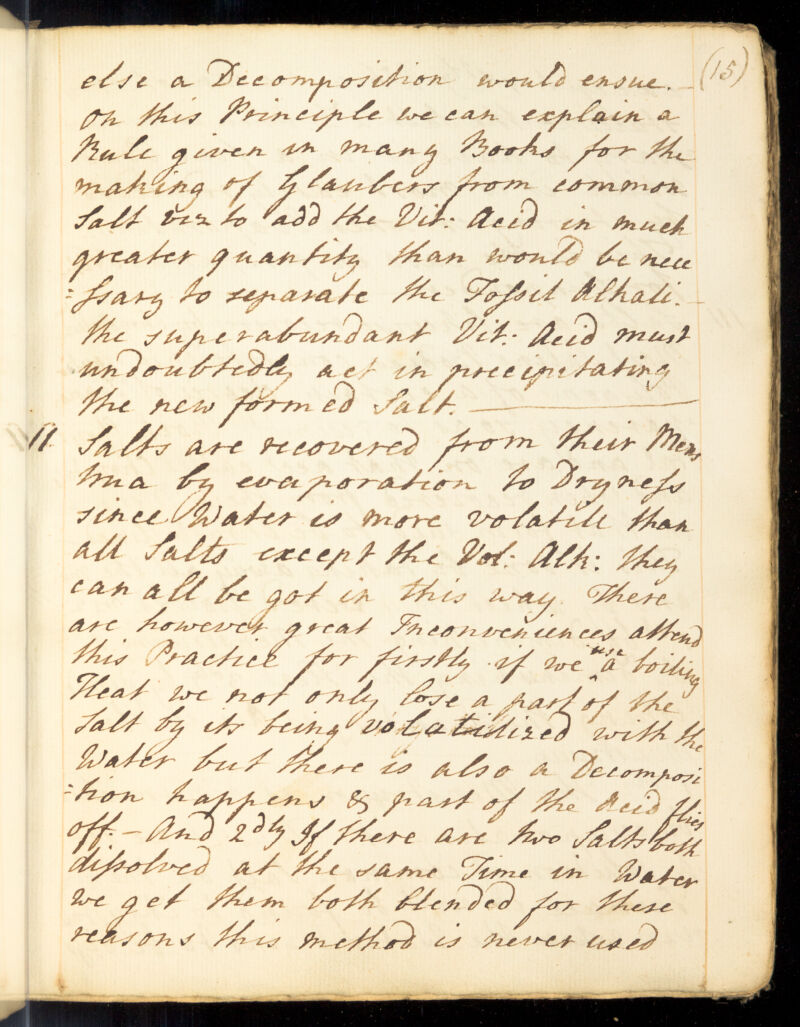 (15)
else a Decomposition would ensue. –
On this Principle we can explain a
Rule given in many Books for the
making of Glaubers from common
Salt viz to add the Vit: Acid in much
greater quantity than would be nece
=ſsary to separate the Foſsil Alkali. –
the superabundant Vit: Acid must
undoubtedly act in precipitating
the new formed Salt. —
11. Salts are recovered from their Mens
trua by evaporation to Dryneſs
since Water is more volatile than
all Salts except the Vol: Alk: they
can all be got in this way. There
are however great Inconveniences attend
this Practice for firstly if we ^use a boiling
Heat we not only lose a part of the
Salt by its being volatilized with the
Water but there is also a Decomposi
=tion happens & part of the Acid flies
off. – And 2dly If there are two Salts both
diſsolved at the same Time in Water
we get them both blended for these
reasons this method is never used